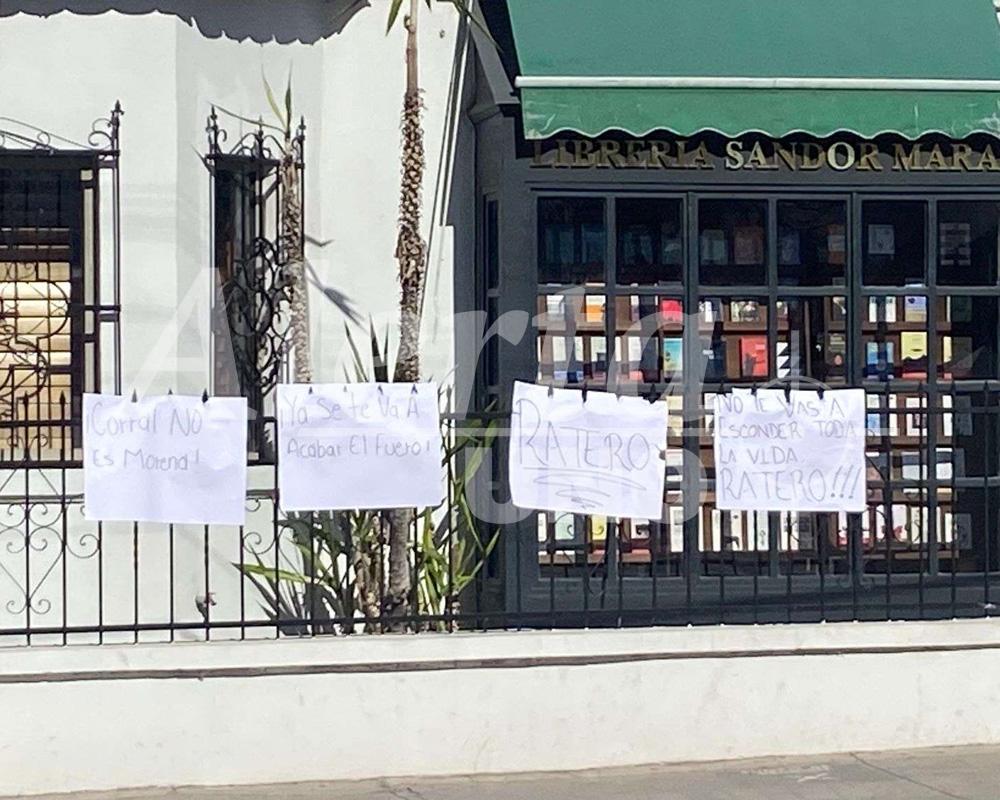 LIBRERIA SANDOR MARA
¡Corral NO
Es Morena!
¡Ya Se te Va A
Acabar El Fuero!
RATERO
¡NO TE VAS A
ESCONDER TODA
LA VIDA
RATERO!!!
Alerta